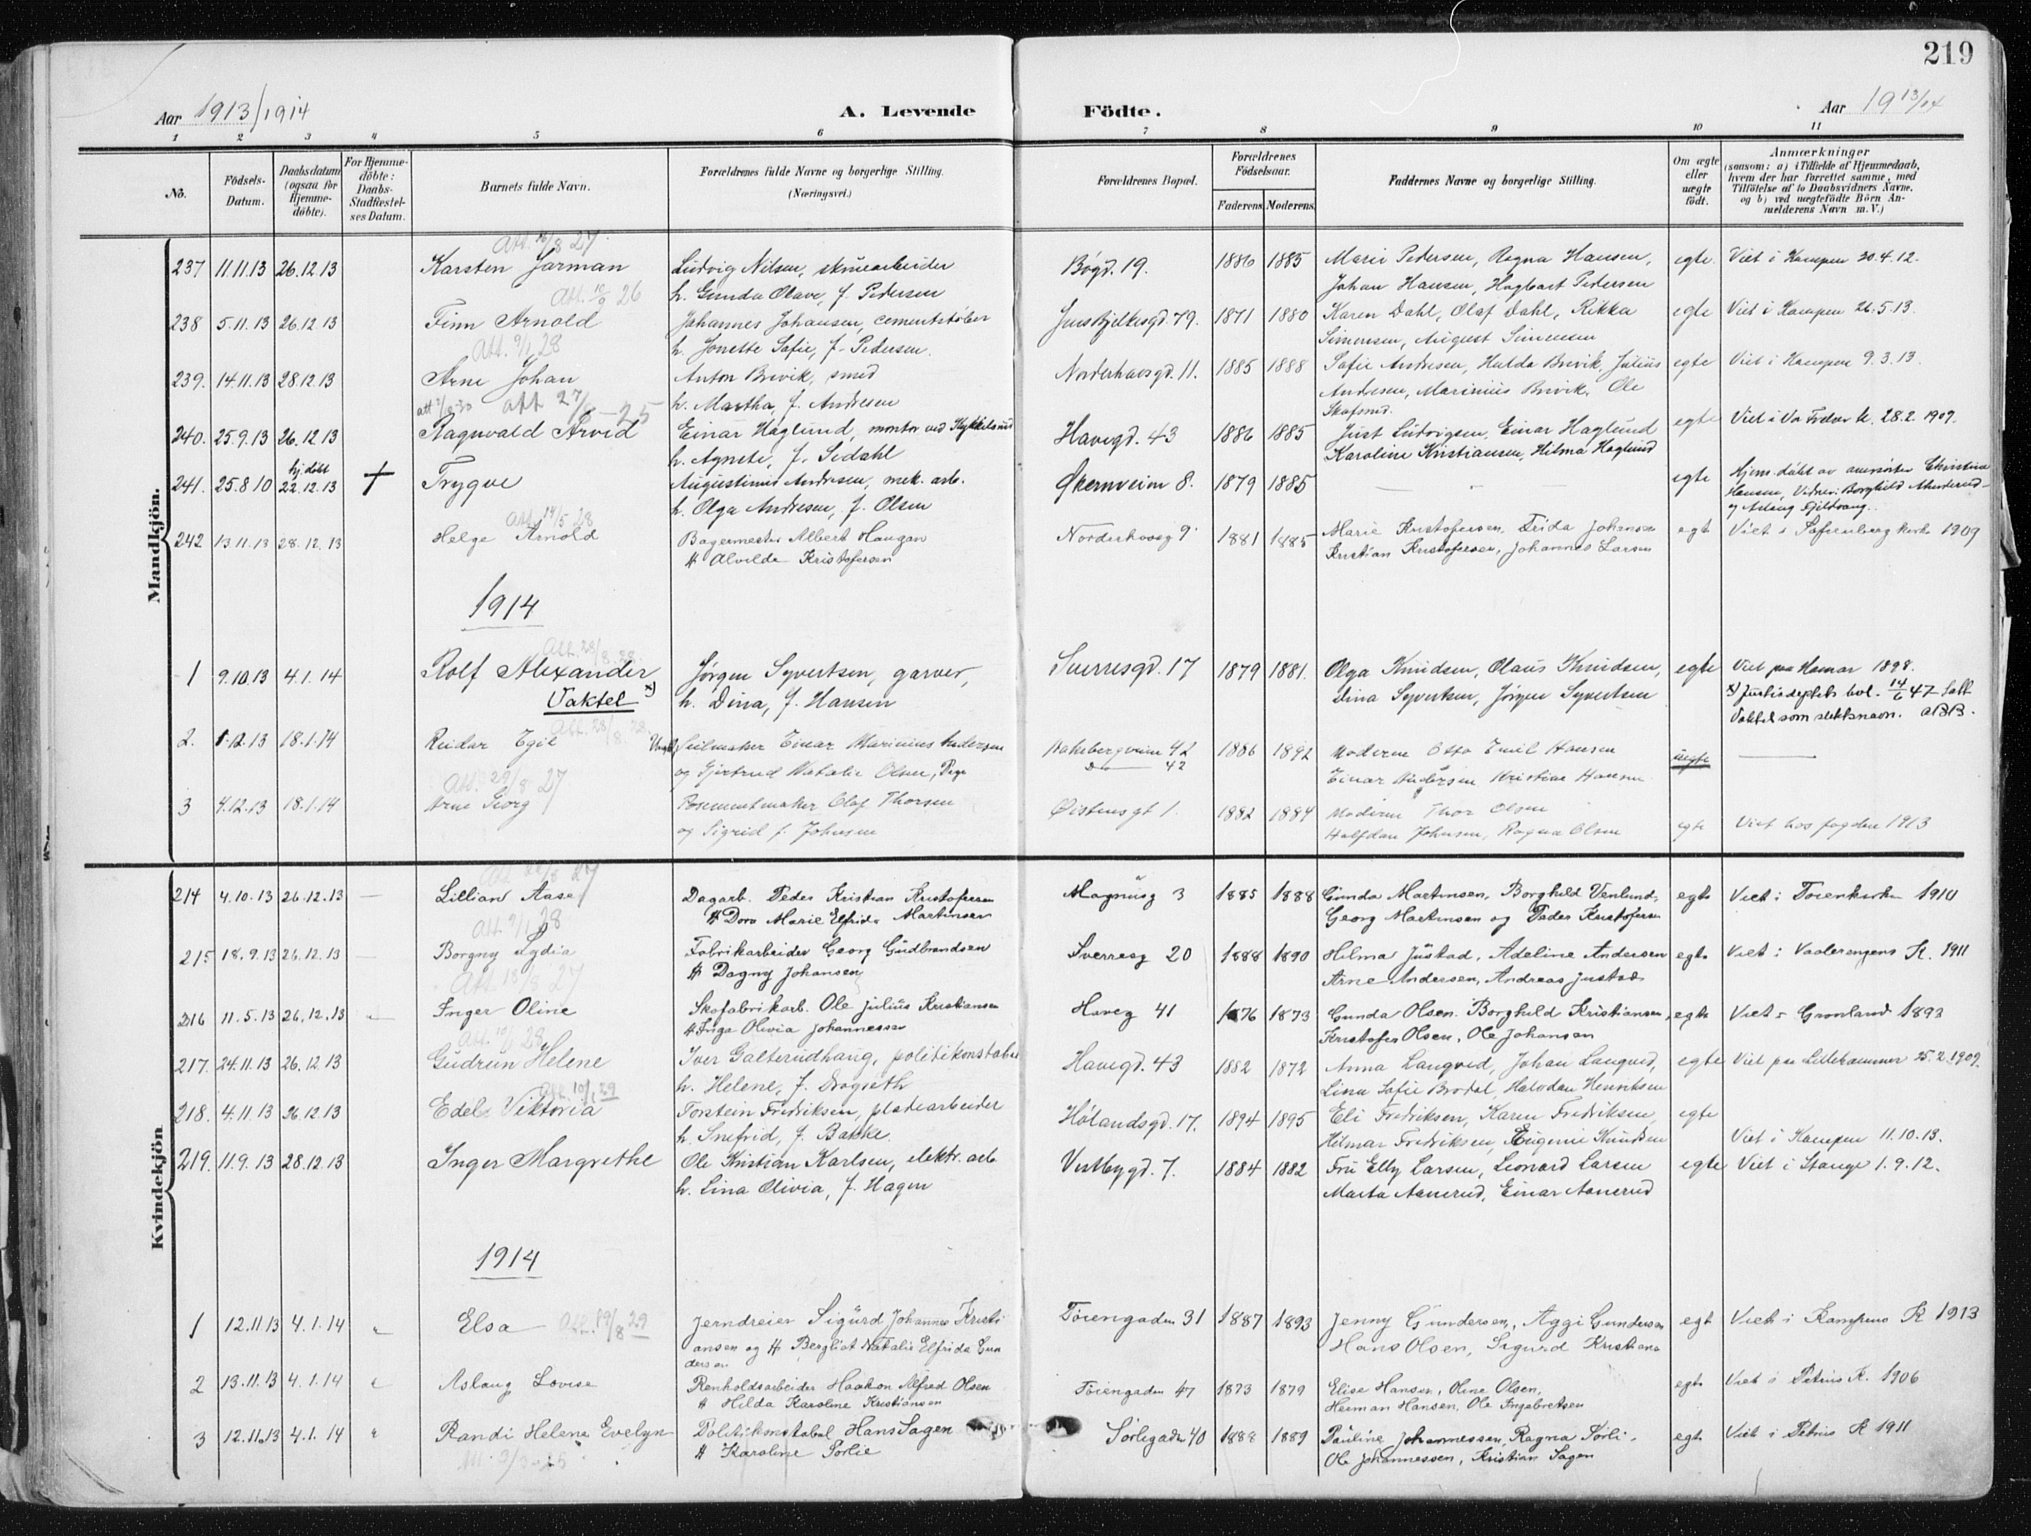 219
Aar 1913/1914 A. Levende Födte. Aar 1913/14
1 2 3 4 5 6 7 8 9 10 11
No. Födsels-Datum. Daabsdatum (ogsaa for Hjemmedöbte). For Hjemmedöbte: Daabs-Stadfæstelses Datum. Barnets fulde Navn. Forældrenes fulde Navne og borgerlige Stilling. (Næringsvei.) Forældrenes Bopæl. Forældrenes Födselsaar. Faderens. Moderens. Faddernes Navne og borgerlige Stilling. Om ægte eller uægte födt. Anmærkninger (saasom: a) i Tilfælde af Hjemmedaab, hvem der har forrettet samme, med Tilföielse af to Daabsvidners Navne, og b) ved uægtefödte Börn Anmelderens Navn m. V.)
Mandkjön.
Att. 16/8 27
237 11.11.13 26.12 13 Karsten Jarman Ludvig Nilsen, skruearbeider Bøgd. 19. 1886 1885 Marie Pedersen, Ragna Hansen, egte. Viet i Kampen 30.4.12.
h. Gunda Olave, f. Pedersen Johan Hansen, Hagbart Pedersen
238 5.11.13 26.12 13 Finn Arnold Johannes Johansen, cementstøber Jens Bjelkesgd. 79. 1871 1880 Karen Dahl, Olaf Dahl, Rikka egte Viet i Kampen 26.5.13.
Att. 9/1 28 h. Jonette Sofie, f. Pedersen. Simensen, August Simensen
239. 14.11.13 28 12 13 Arne Johan Anton Brevik, smed Norderhovsgd. 11. 1885 1888 Sofie Andresen, Hulda Brevik, Julius egte Viet i Kampen 9.3.13.
h. Martha, f. Andresen Andresen, Marinius Brevik, Ole
240. 25.9.13 26.12 13 Ragnvald Arvid Einar Haglund, montør ved Kykkelsrud Havegd. 43 1886 1885 Just Ludvigsen, Einar Haglund egte Viet i Vor Frelser K. 28.2.1909.
h. Agnete, f. Sedahl Karoline Kristiansen, Hilma Haglund
241. 25.8 10 hj. døbt 22.12.13 + Trygve Augustinus Andresen, mek. arb. Økernveien 8. 1879 1885 egte Hjem. døbt av Christine
h. Olga Andresen, f. Olsen Hansen, Vidner: Borghild
Att. 14/5 28 og Aslaug
242 13.11.13 28.12.13 Helge Arnold Bagermester Albert Haugan Norderhovsg 9 1881 1885 Marie Kristofersen, Frida Johansen egt Viet i Sofienberg kirke 1909
H Alvilde Kristofersen Kristian Kristofersen, Johannes Larsen
1914
1 9.10.13 4.1.14 Rolf Alexander Jørgen Syvertsen, garver, Sverresgd. 17 1879 1881. Olga Knudsen, Olaus Knudsen, egte Viet paa Hamar 1898.
Vaktel x) h. Dina, f. Hansen Dina Syvertsen, Jørgen Syvertsen x) Justisdeptets bev. 14/6 47
Vaktel som slektsnavn.
2. 1.12.13 18.1.14 Reidar Egil Seilmaker Einar Marinius Andersen 42 1886 1892 Moderen Otto Emil Hansen uegte
og Gjertrud Natalie Olsen, Pige Do 42 Einar Andersen Kristine Hansen
Att. 29/8 27
3 4.12.13 18.1.14 Arne Georg Posementmaker Olaf Thorsen Øistensgt 1. 1882 1884 Moderen Thor Olsen egte Viet hos fogden 1913
og Sigrid f. Johnsen Halfdan Johnsen, Ragna Olsen
Kvindekjön
214 4.10.13 26.12.13 — Lillian Aase Dagarb. Peder Kristian Kristofersen Magnusg 3 1885 1888 Gunda Martinsen, Borghild Venlund, egte Viet i Tøienkirken 1910
Att. 9/1 28 H Dora Marie Elfrida Martinsen Georg Martinsen og Peder Kristofersen
215 18.9.13 26.12.13 — Borgny Lydia Fabrikarbeider Georg Gudbrandsen Sverresg 20 1888 1890 Hilma Justad, Adeline Andersen egte Viet i Vaalerengens K. 1911
Att. 18/8 27 H Dagny Johansen Arne Andersen, Andreas Justad
216 11.5.13 26.12.13 Inger Oline Skofabrikarb. Ole Julius Kristiansen Haveg 41 1876 1873 Gunda Olsen, Borghild Kristiansen, egte Viet i Grønland 1893
H Inga Olivia Johannessen Kristofer Olsen, Ole Johansen
217. 24.11.13 26.12.13 Gudrun Helene Iver Galterudhaug, politikonstabel Havegd. 43 1882 1872 Anna Langvid, Johan Langvid, egte Viet paa Lillehammer 25.2.1909.
Att. 10/1 29 h. Helene, f. Lina Sofie Brodal, Halvdan Henriksen
218. 4.11.13 26.12.13 Edel Viktoria Torstein Fredriksen, pladearbeider Hølandsgd. 17. 1894 1895 Eli Fredriksen, Karen Fredriksen, egte
h. Snefrid, f. Bakke. Hilmar Fredriksen, Eugenie Knudsen Viet i Kampen 11.10.13.
219. 11.9.13 28.12.13 Inger Margrethe Ole Kristian Karlsen, elektr. arb. Vestbygd. 7. 1884 1882 Fru Elly Larsen, Leonard Larsen egte Viet i Stange 1.9.12.
h. Lina Olivia, f. Hagen Marta Aanerud, Einar Aanerud
1914
1 12.11.13 4.1.14 Elsa Att. 19/8 29 Jerndreier Sigurd Johannes Kristi Tøiengaden 31 1887 1893 Jenny Gundersen, Aggi Gundersen egt Viet i Kampens K 1913
ansen og H Bergliot Natalie Elfrida Gun Hans Olsen, Sigurd Kristians
dersen
2 13.11.13 4.1.14 Aslaug Lovise Renholdsarbeider Haakon Alfred Olsen Tøiengaden 47 1873 1879 Elise Hansen, Oline Olsen, egt Viet i Petrus K. 1906
H Hilda Karoline Kristiansen Herman Hansen, Ole Ingebretsen
3 12.11.13 4.1.14 Randi Helene Evelyn Politikonstabel Hans Sagen Sørligaden 40 1888 1889 Pauline Johannessen, Ragna Sørli. egt Viet i Petrus K 1911
H Karoline Sørlie Ole Johannessen, Kristian Sagen